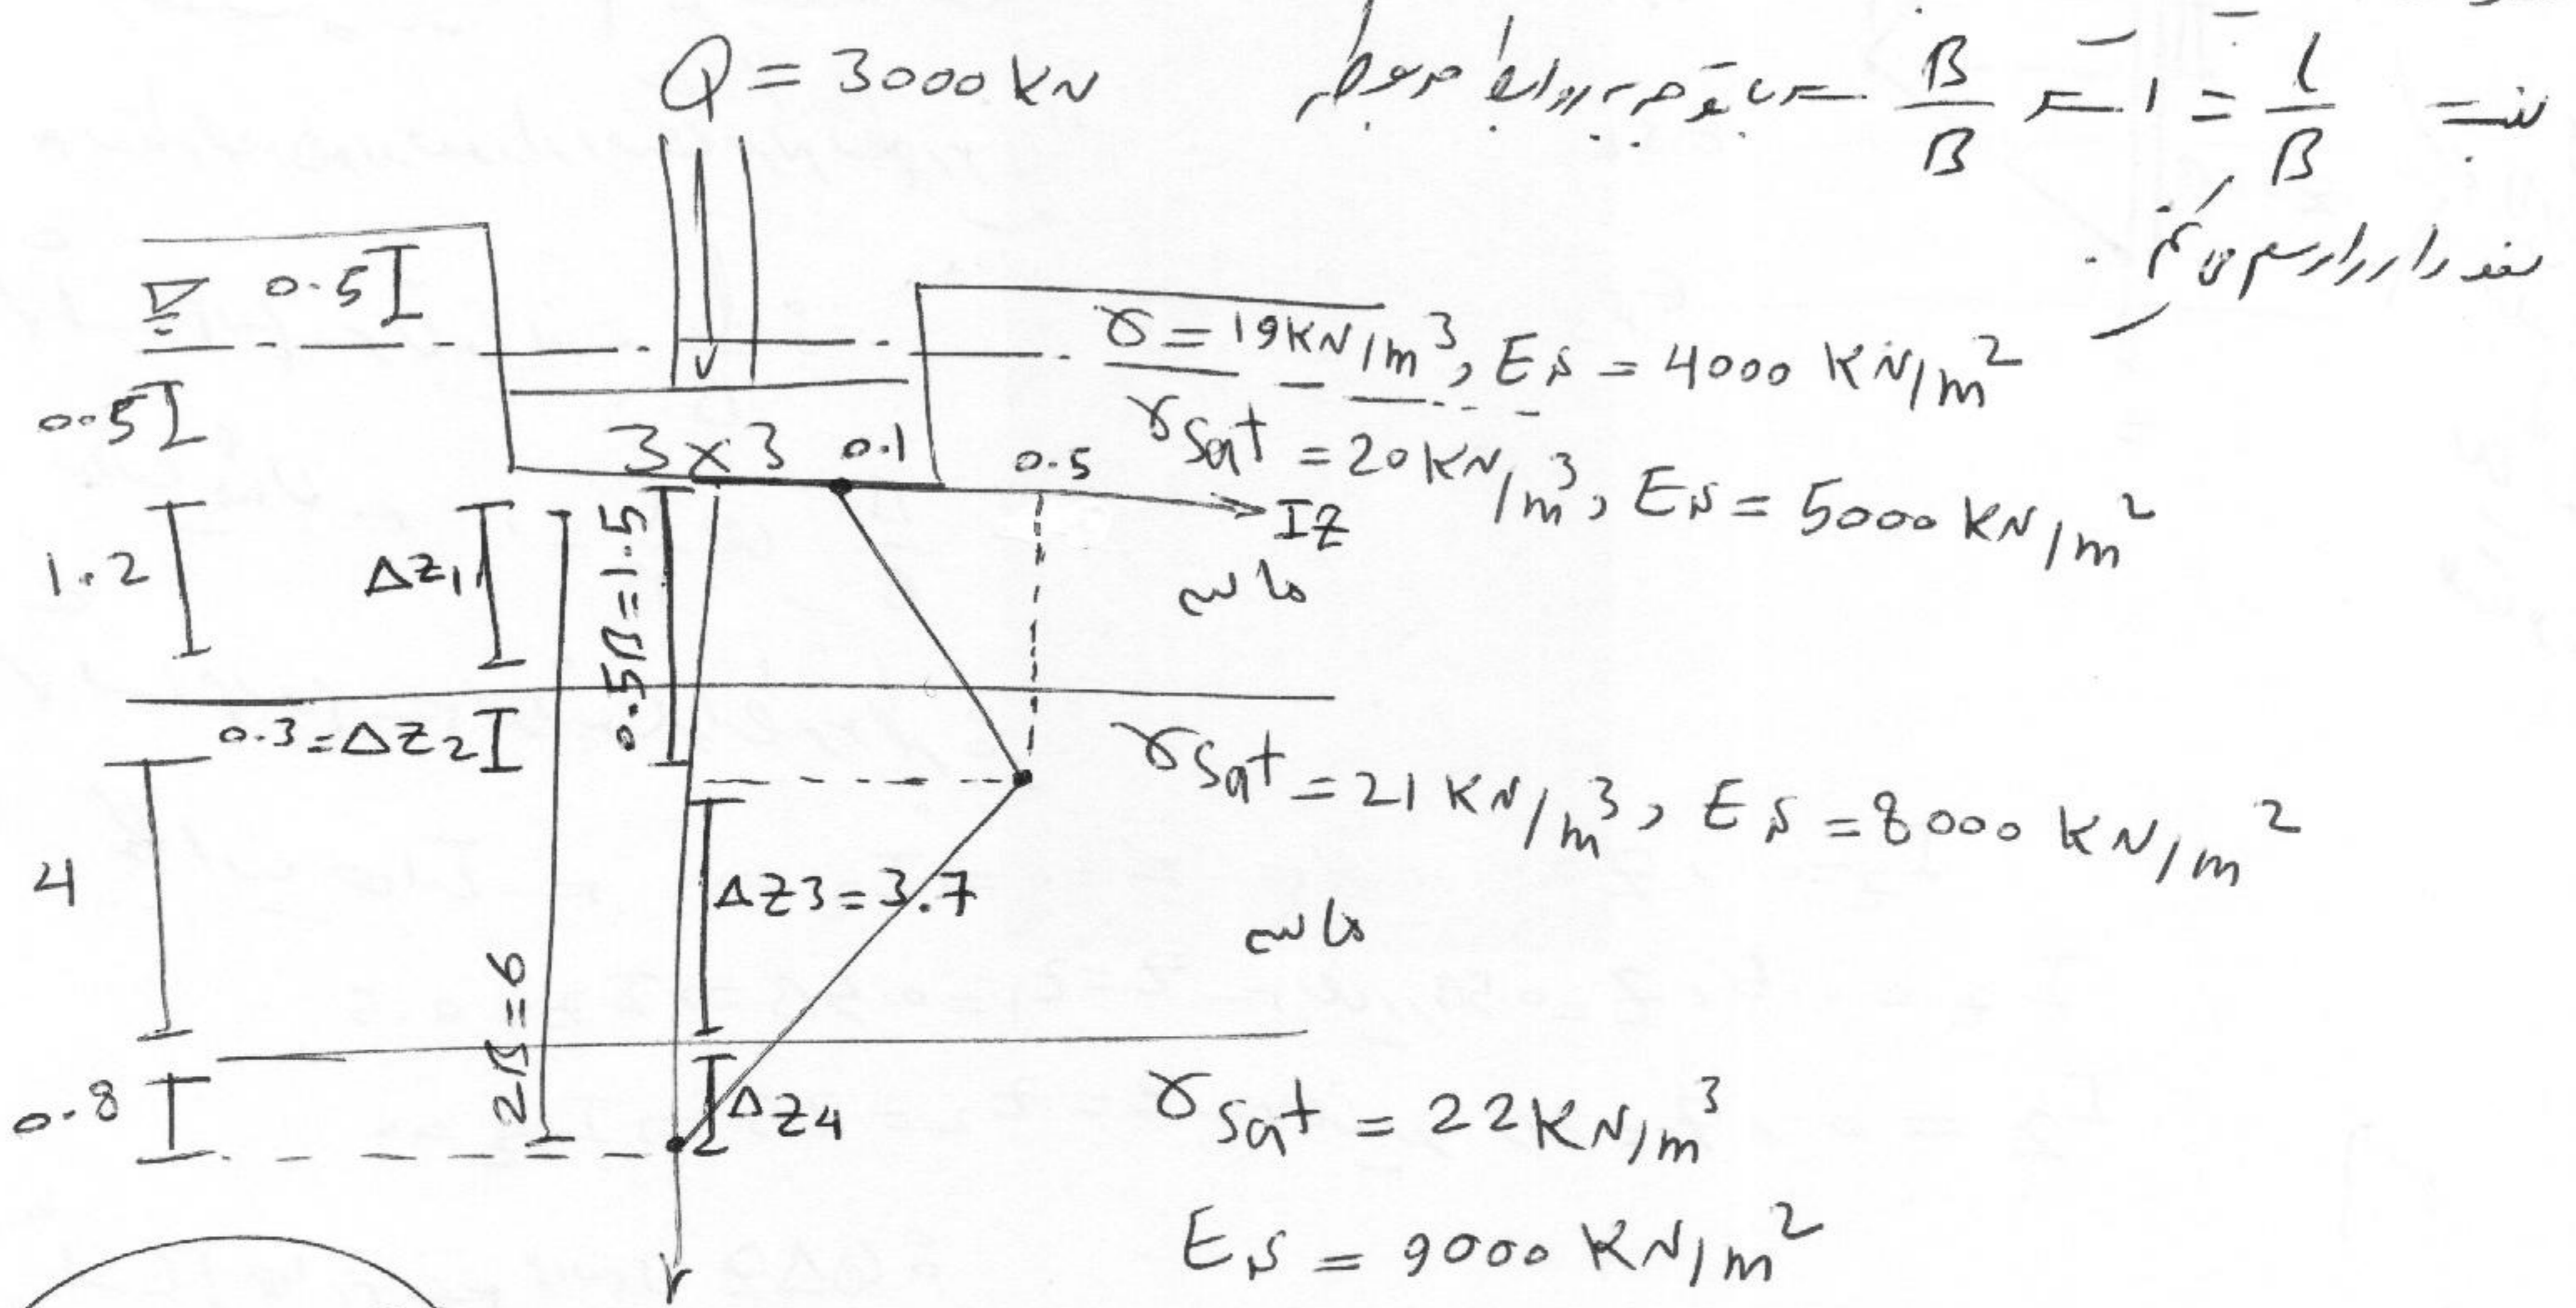 Q = 3000 KN
نسبت L/B = 1 ← B/B ← با توجه به روابط مربوطه
نمودار را رسم می کنیم.
0.5
γ = 19 KN/m³, Es = 4000 KN/m²
0.5
γsat = 20 KN/m³, Es = 5000 KN/m²
3×3 0.1 0.5
IZ
1.2 ΔZ1 0.5B=1.5
ماسه
0.3=ΔZ2
γsat = 21 KN/m³, Es = 8000 KN/m²
4 ΔZ3=3.7
ماسه
2B=6
0.8 ΔZ4
γsat = 22 KN/m³
Es = 9000 KN/m²